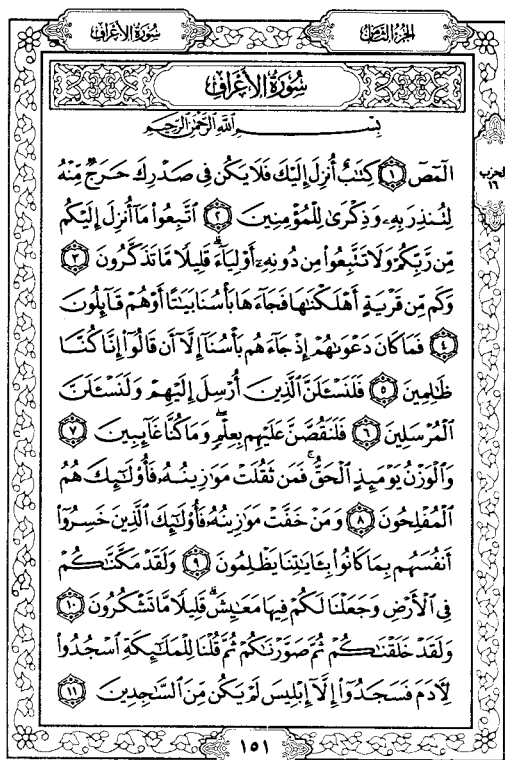 سُورَةُ الأَعْرَافِ الجُزْءُ الثَّامِنُ
سُورَةُ الأَعْرَافِ
بِسْمِ ٱللَّهِ ٱلرَّحْمَٰنِ ٱلرَّحِيمِ
الٓمٓصٓ ١ كِتَٰبٌ أُنزِلَ إِلَيْكَ فَلَا يَكُن فِى صَدْرِكَ حَرَجٌ مِّنْهُ
الحزب ١٦
لِتُنذِرَ بِهِۦ وَذِكْرَىٰ لِلْمُؤْمِنِينَ ٢ ٱتَّبِعُوا۟ مَآ أُنزِلَ إِلَيْكُم
مِّن رَّبِّكُمْ وَلَا تَتَّبِعُوا۟ مِن دُونِهِۦٓ أَوْلِيَآءَ ۗ قَلِيلًا مَّا تَذَكَّرُونَ ٣
وَكَم مِّن قَرْيَةٍ أَهْلَكْنَٰهَا فَجَآءَهَا بَأْسُنَا بَيَٰتًا أَوْ هُمْ قَآئِلُونَ
٤ فَمَا كَانَ دَعْوَىٰهُمْ إِذْ جَآءَهُم بَأْسُنَآ إِلَّآ أَن قَالُوٓا۟ إِنَّا كُنَّا
ظَٰلِمِينَ ٥ فَلَنَسْـَٔلَنَّ ٱلَّذِينَ أُرْسِلَ إِلَيْهِمْ وَلَنَسْـَٔلَنَّ
ٱلْمُرْسَلِينَ ٦ فَلَنَقُصَّنَّ عَلَيْهِم بِعِلْمٍ ۖ وَمَا كُنَّا غَآئِبِينَ ٧
وَٱلْوَزْنُ يَوْمَئِذٍ ٱلْحَقُّ ۚ فَمَن ثَقُلَتْ مَوَٰزِينُهُۥ فَأُو۟لَٰٓئِكَ هُمُ
ٱلْمُفْلِحُونَ ٨ وَمَنْ خَفَّتْ مَوَٰزِينُهُۥ فَأُو۟لَٰٓئِكَ ٱلَّذِينَ خَسِرُوٓا۟
أَنفُسَهُم بِمَا كَانُوا۟ بِـَٔايَٰتِنَا يَظْلِمُونَ ٩ وَلَقَدْ مَكَّنَّٰكُمْ
فِى ٱلْأَرْضِ وَجَعَلْنَا لَكُمْ فِيهَا مَعَٰيِشَ ۗ قَلِيلًا مَّا تَشْكُرُونَ ١٠
وَلَقَدْ خَلَقْنَٰكُمْ ثُمَّ صَوَّرْنَٰكُمْ ثُمَّ قُلْنَا لِلْمَلَٰٓئِكَةِ ٱسْجُدُوا۟
لِـَٔادَمَ فَسَجَدُوٓا۟ إِلَّآ إِبْلِيسَ لَمْ يَكُن مِّنَ ٱلسَّٰجِدِينَ ١١
١٥١